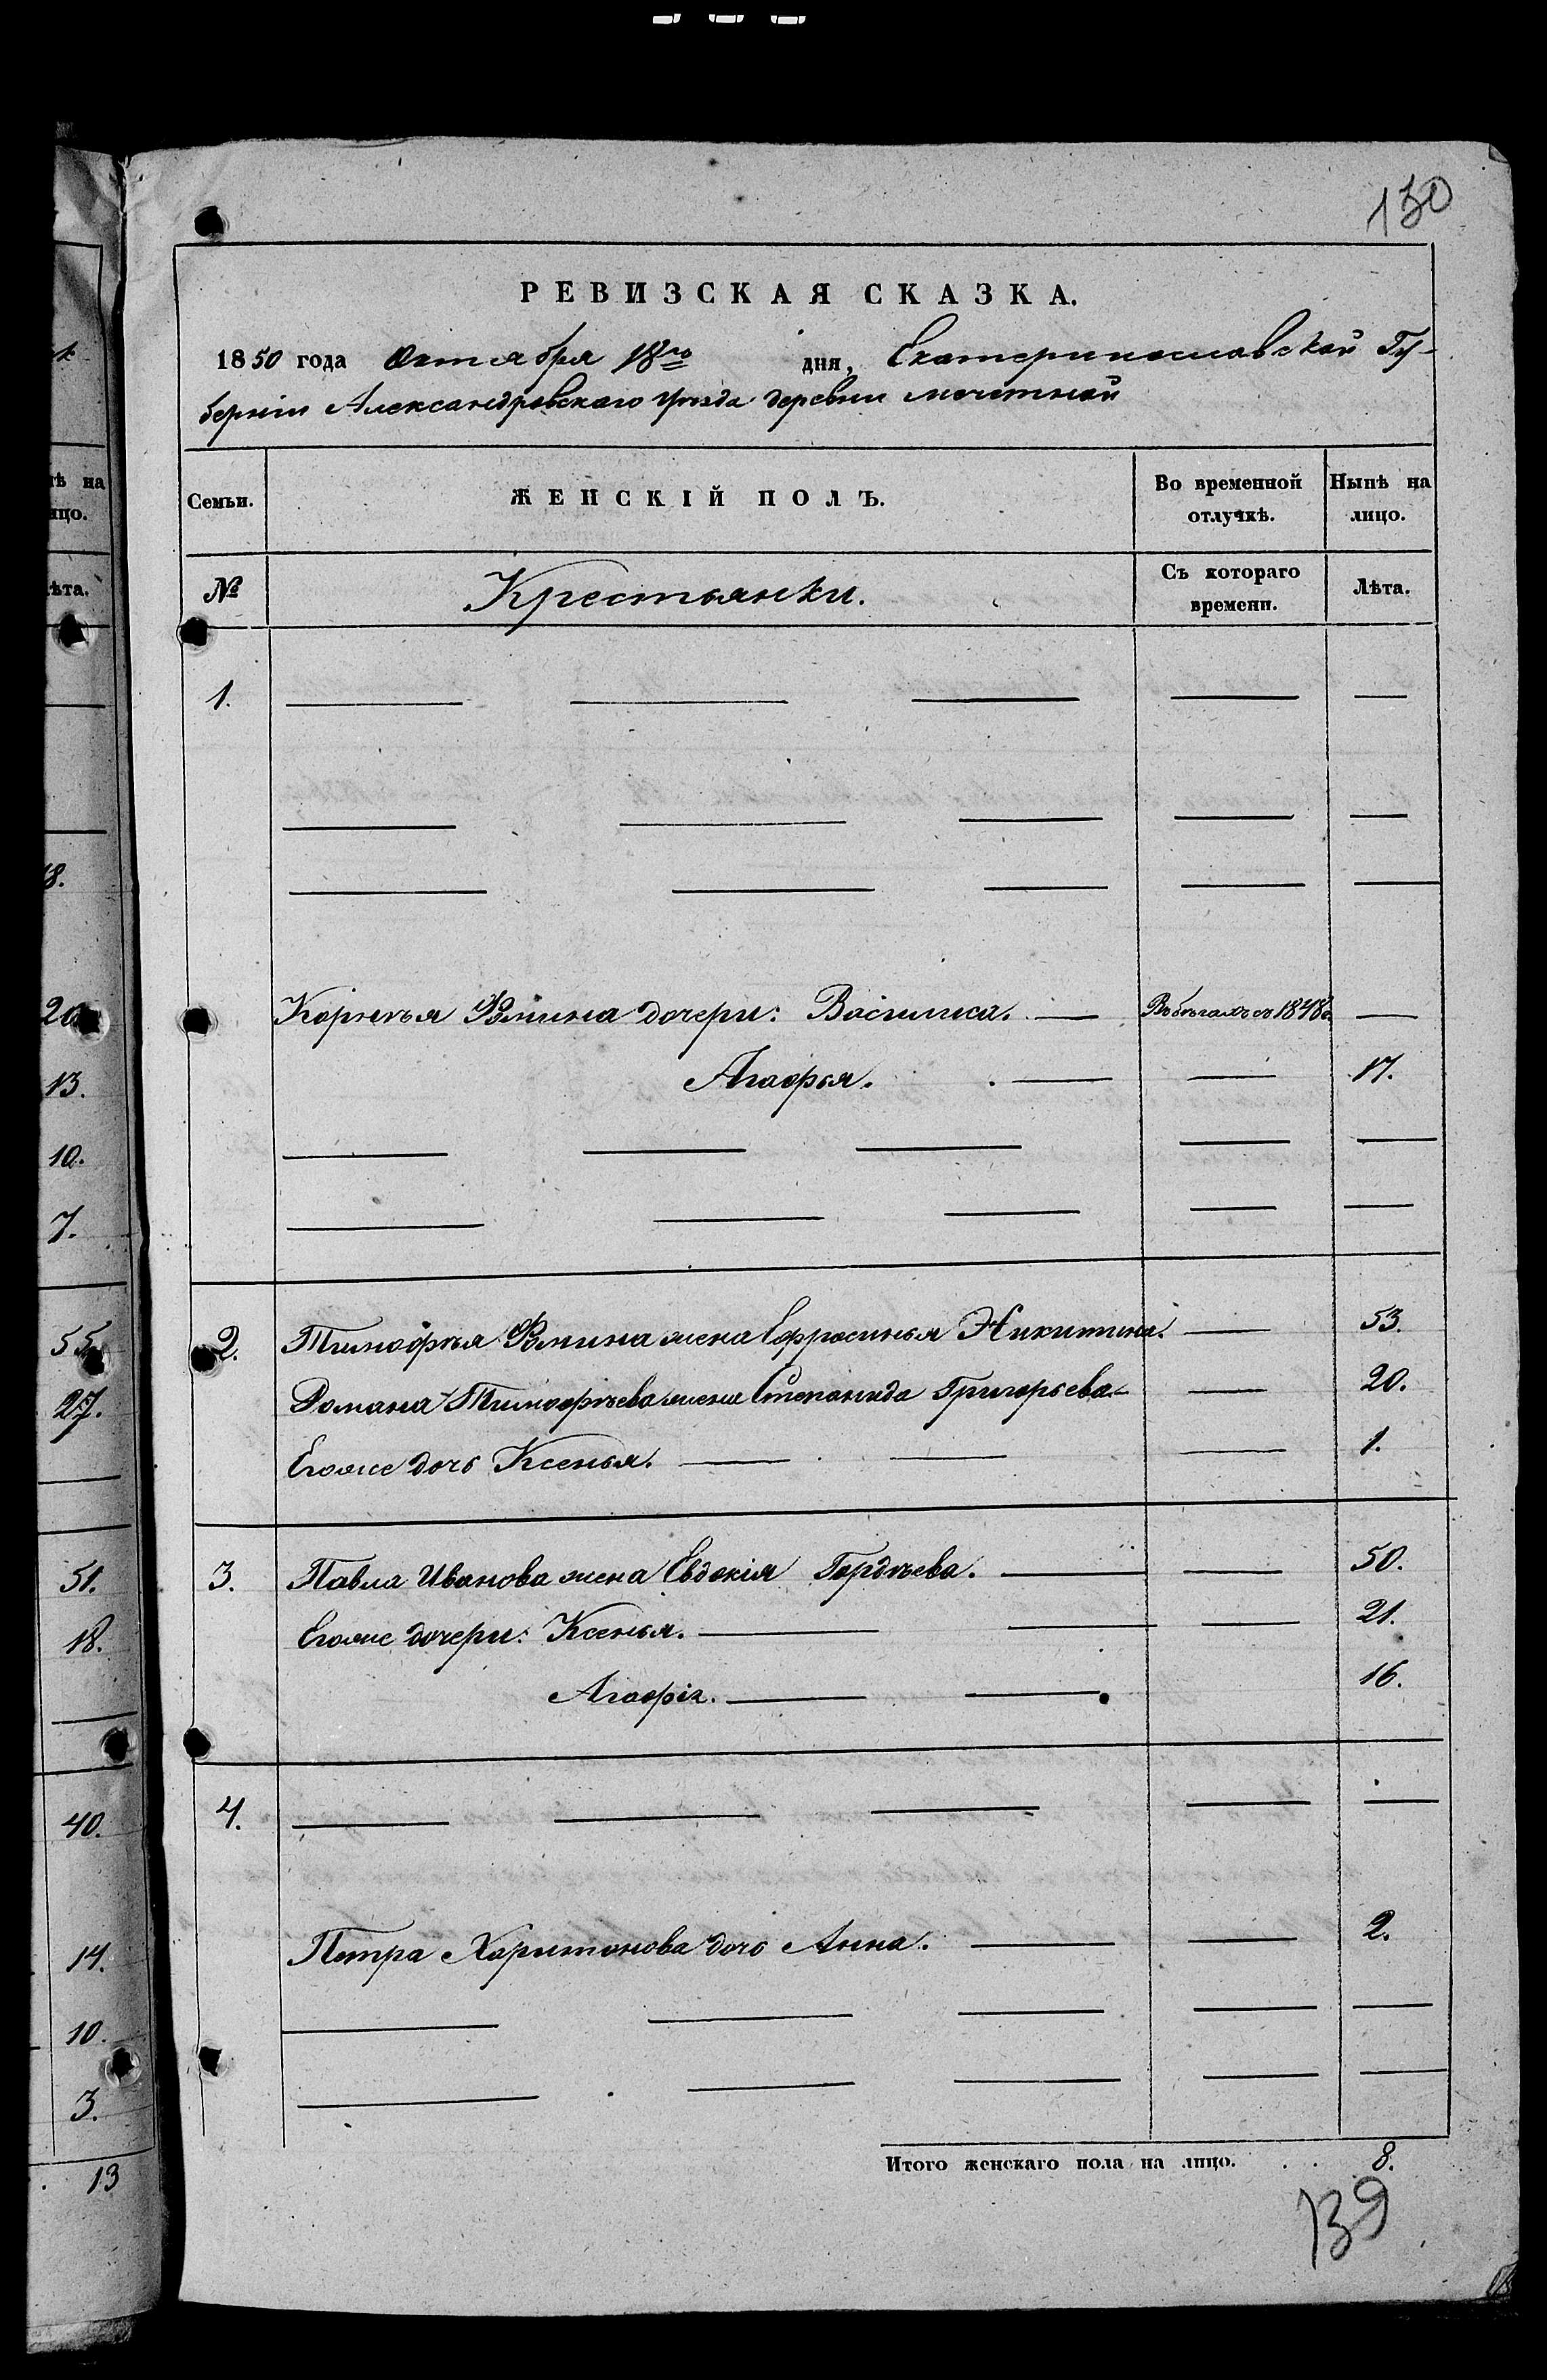 130
РЕВИЗСКАЯ СКАЗКА.
1850 года Октября 18го дня, Екатеринославской Гу-
берніи Александровскаго уѣзда деревни Мечетной
Семьи. ЖЕНСКІЙ ПОЛЪ. Во временной отлучкѣ. Нынѣ на лицо.
№ Крестьянки. Съ котораго времени. Лѣта.
1. — — — — —
— — — — —
— — — — —
Корнѣя Фомина дочери: Василиса. — Въ бѣгахъ съ 1848г. —
Агафья. — — 17.
— — — — —
— — — — —
2. Тимофѣя Фомина жена Ефросинья Никитина. — 53.
Романа Тимофѣева жена Степанида Григорьева — — 20.
Егоже дочь Ксенья. — — — 1.
3. Павла Иванова жена Евдокія Гордѣева. — — 50.
Егоже дочери: Ксенья. — — — 21.
Агафія. — — 16.
4. — — — — —
Петра Харитонова дочь Анна. — — 2.
— — — — —
— — — — —
Итого женскаго пола на лицо. . . 8.
139
тѣ на
ицо.
ѣта.
18.
20.
13.
10.
7.
55.
27.
51.
18.
40.
14.
10.
3.
13